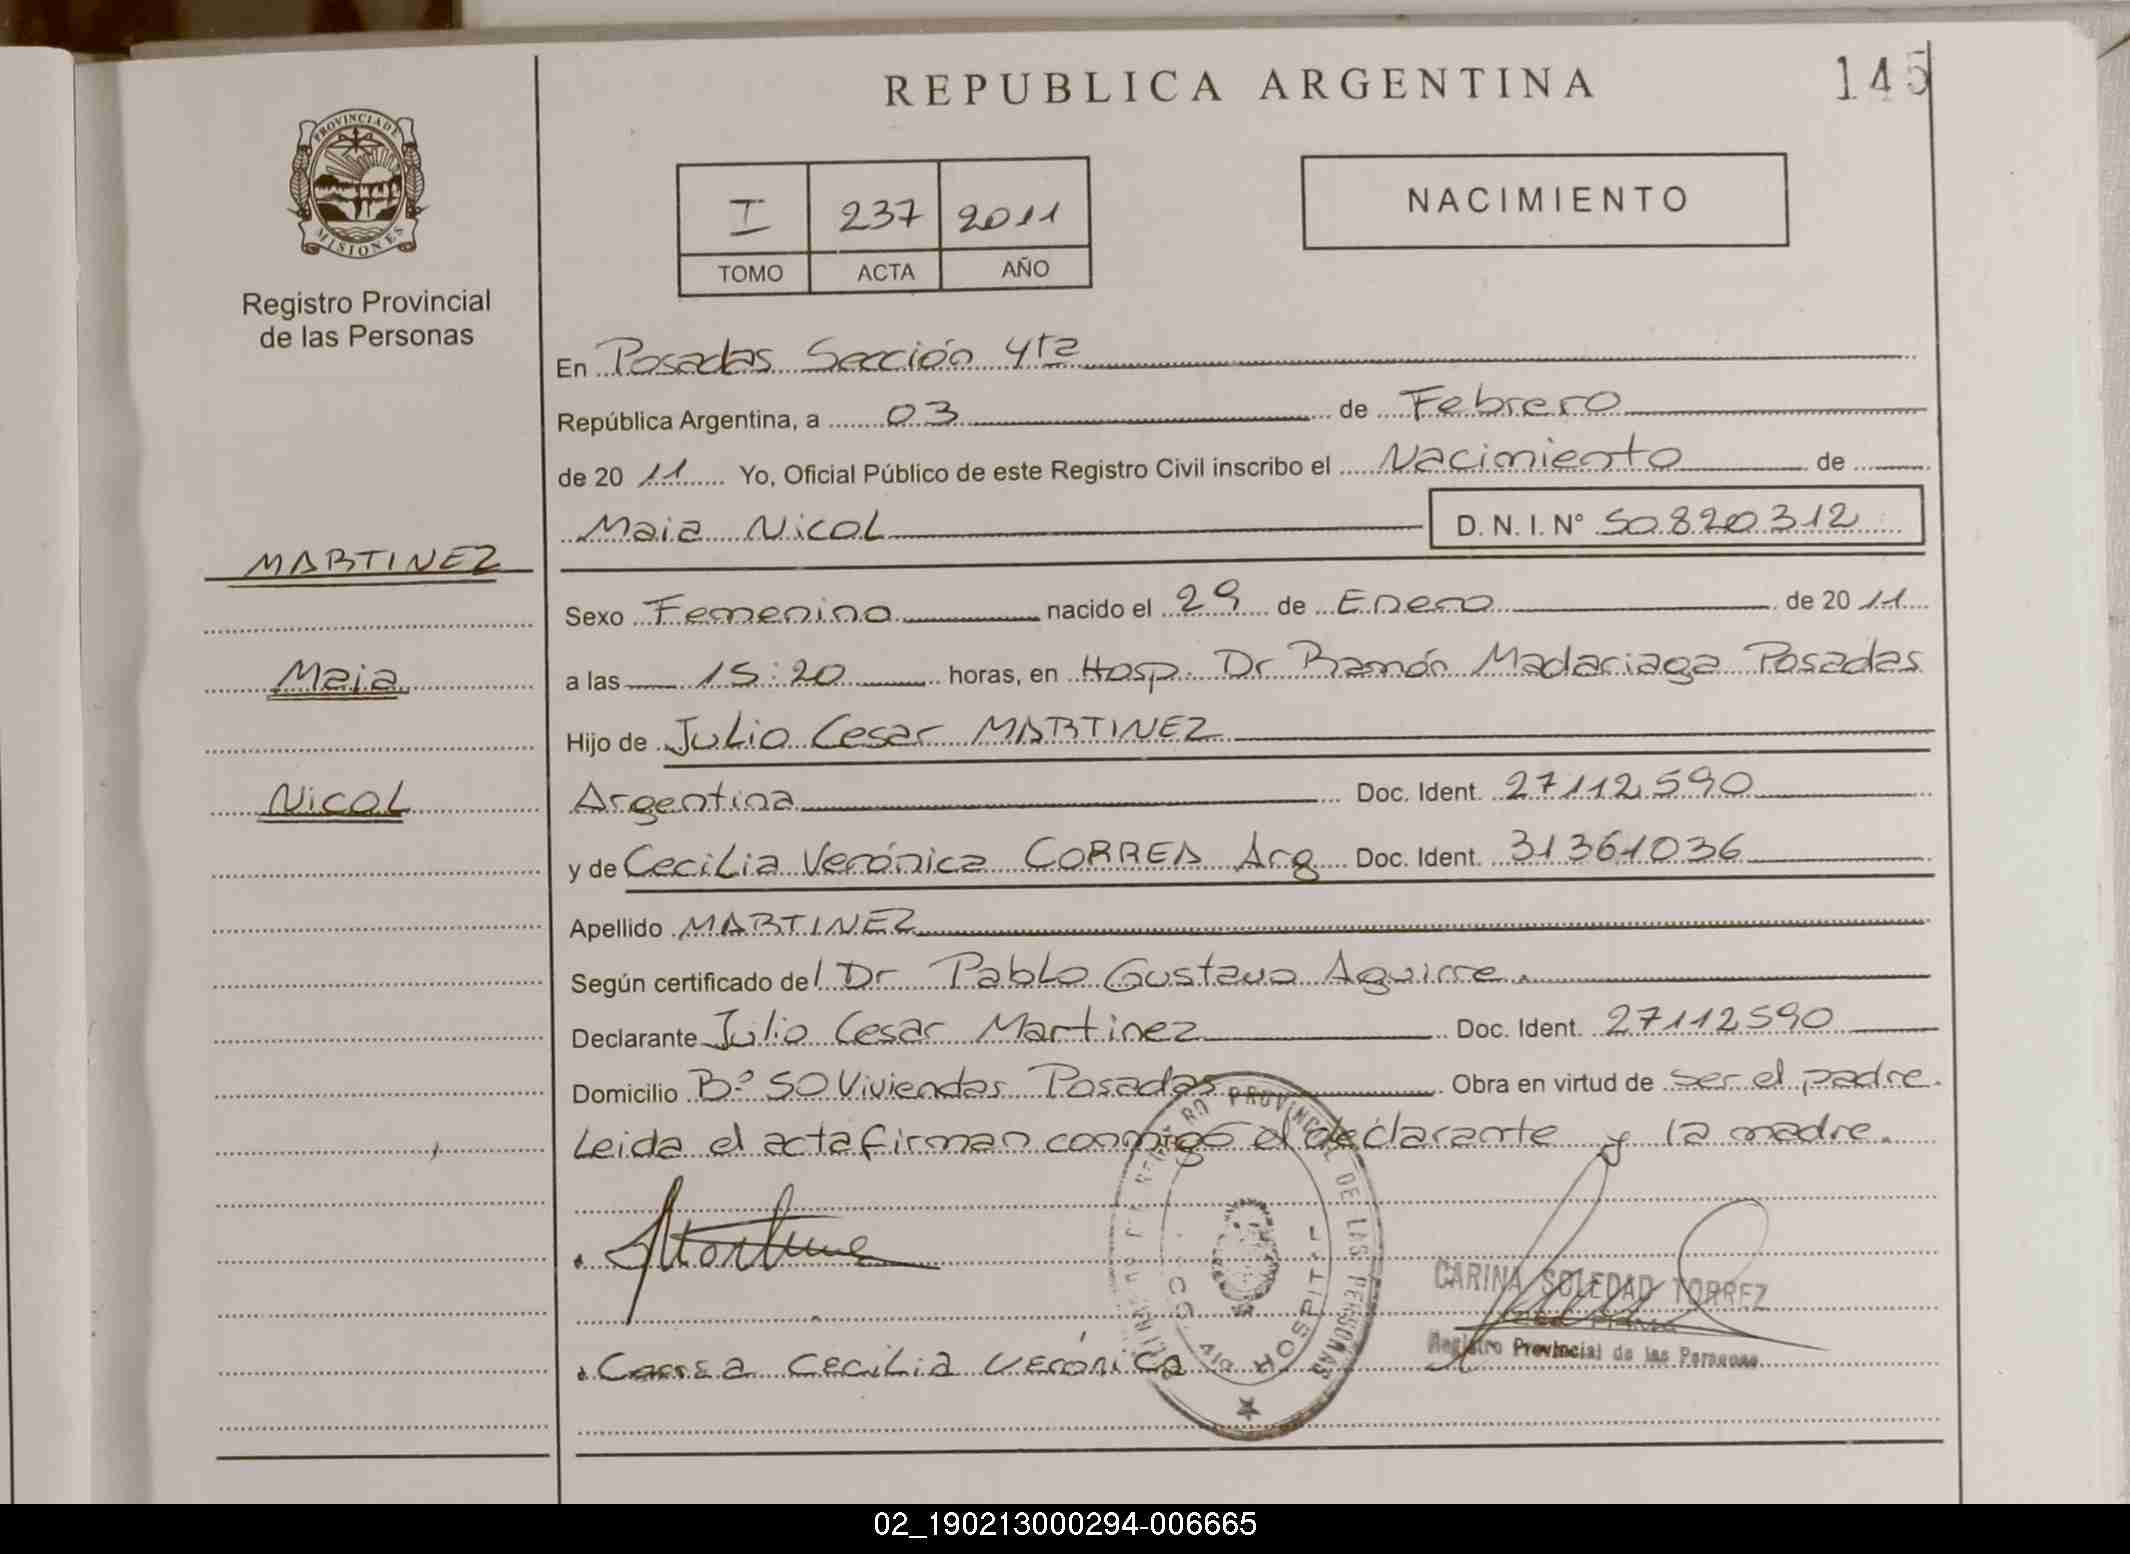 REPUBLICA ARGENTINA
145
PROVINCIA DE
MISIONES
Registro Provincial
de las Personas
I 237 2011
TOMO ACTA AÑO
NACIMIENTO
En Posadas Sección 4ta
República Argentina, a 03 de Febrero
de 20 11 Yo, Oficial Público de este Registro Civil inscribo el Nacimiento de
Maia Nicol D. N. I. N° 50.820.312
MARTINEZ
Maia
Nicol
Sexo Femenino nacido el 29 de Enero de 20 11
a las 15:20 horas, en Hosp. Dr Ramón Madariaga Posadas
Hijo de Julio Cesar MARTINEZ
Argentina Doc. Ident. 27.112.590
y de Cecilia Verónica CORREA Arg Doc. Ident. 31361036
Apellido MARTINEZ
Según certificado del Dr Pablo Gustavo Aguirre.
Declarante Julio Cesar Martinez Doc. Ident. 27112590
Domicilio B° 50 Viviendas Posadas Obra en virtud de ser el padre.
Leida el acta firman conmigo el declarante y la madre.
REGISTRO PROVINCIAL DE LAS PERSONAS
HOSPITAL
CARINA SOLEDAD TORREZ
Registro Provincial de las Personas
Correa Cecilia Verónica
02_190213000294-006665